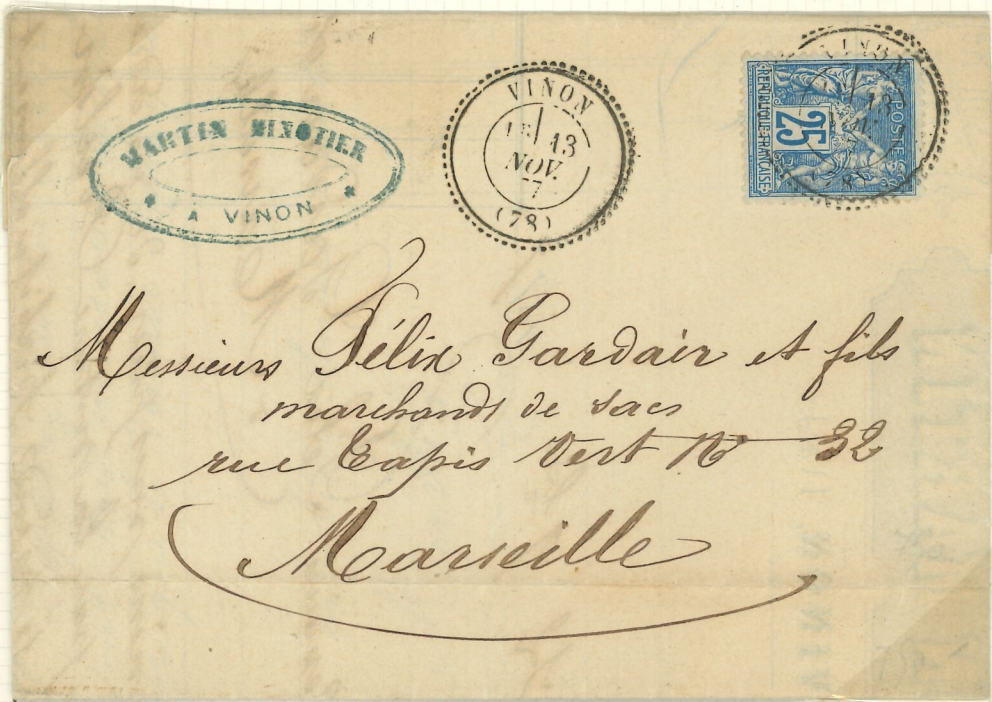 MARTIN MINOTIER
A VINON
VINON
1E 13
NOV.
7
(78)
VINON
13
POSTE
25
REPUBLIQUE FRANCAISE
Messieurs Félix Gardair et fils
marchands de sacs
rue Tapis Vert No 32
Marseille